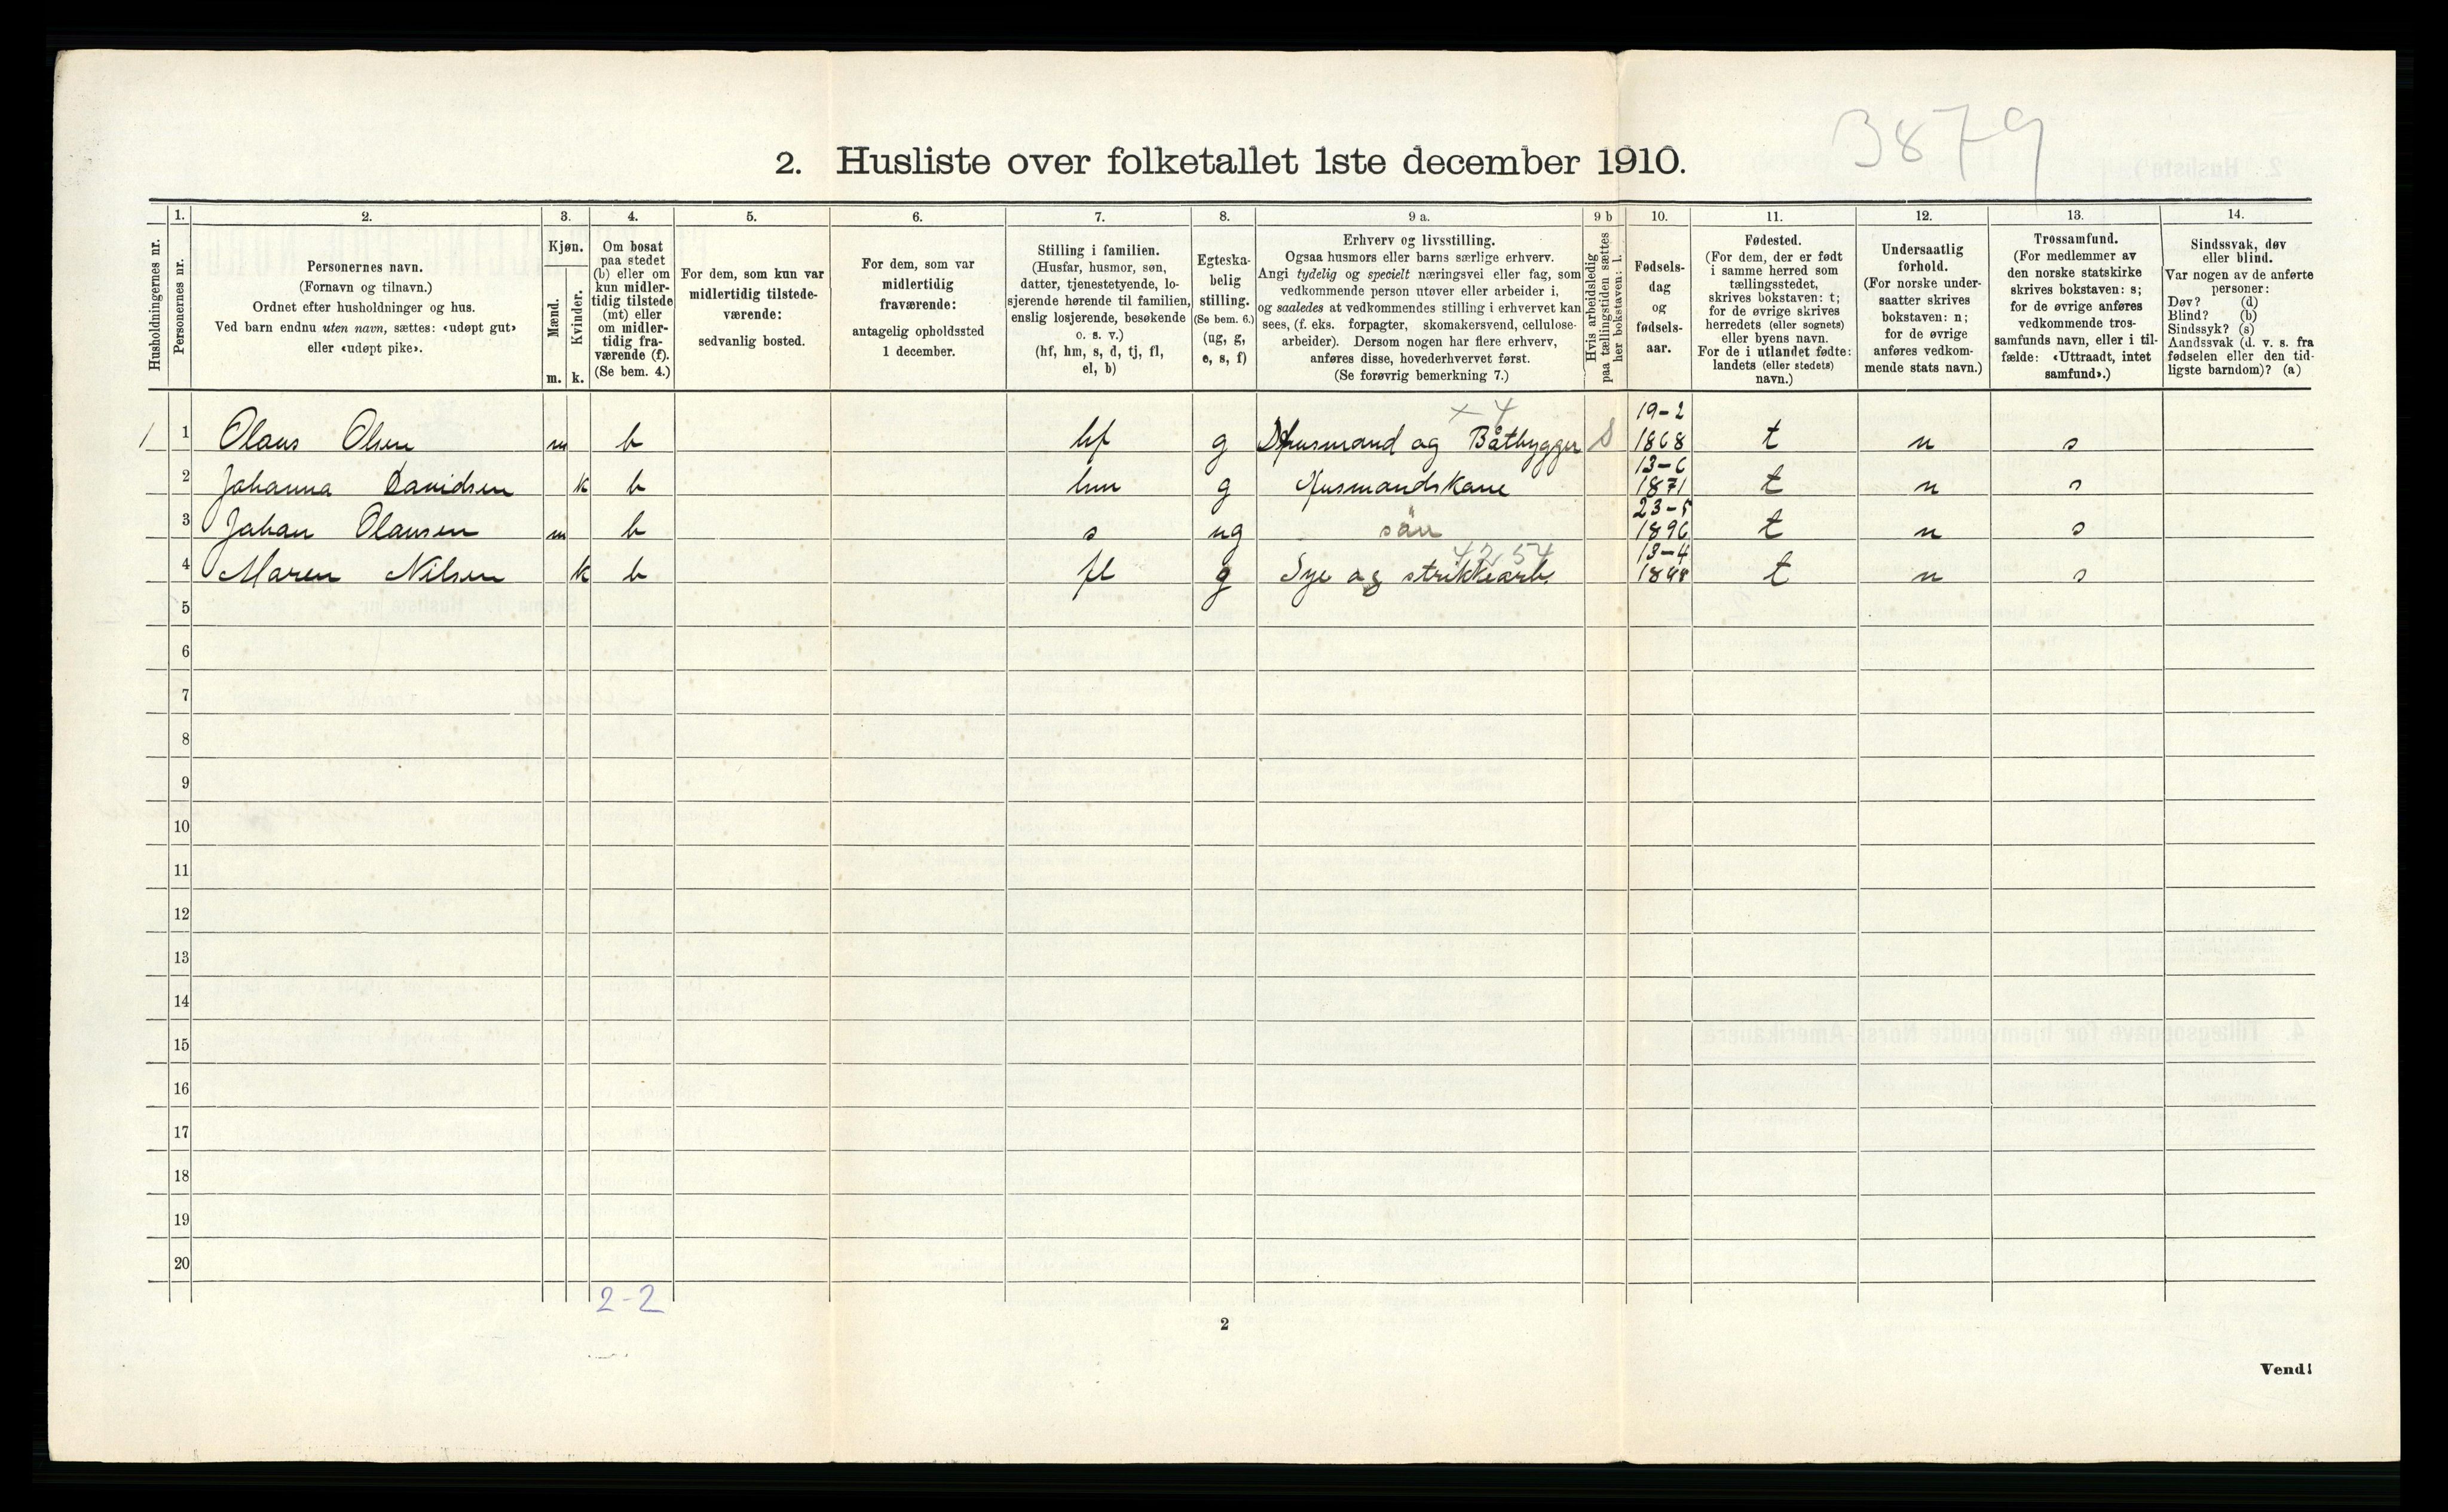 3879
2. Husliste over folketallet 1ste december 1910.
Husholdningernes nr.
1.
Personernes nr.
2.
Personernes navn.
(Fornavn og tilnavn.)
Ordnet efter husholdninger og hus.
Ved barn endnu uten navn, sættes: «udøpt gut»
eller «udøpt pike».
3.
Kjøn.
Mænd.
Kvinder.
m. k.
4.
Om bosat
paa stedet
(b) eller om
kun midler-
tidig tilstede
(mt) eller
om midler-
tidig fra-
værende (f).
(Se bem. 4.)
5.
For dem, som kun var
midlertidig tilstede-
værende:
sedvanlig bosted.
6.
For dem, som var
midlertidig
fraværende:
antagelig opholdssted
1 december.
7.
Stilling i familien.
(Husfar, husmor, søn,
datter, tjenestetyende, lo-
sjerende hørende til familien,
enslig losjerende, besøkende
o. s. v.)
(hf, hm, s, d, tj, fl,
el, b)
8.
Egteska-
belig
stilling.
(Se bem. 6.)
(ug, g,
e, s, f)
9 a.
Erhverv og livsstilling.
Ogsaa husmors eller barns særlige erhverv.
Angi tydelig og specielt næringsvei eller fag, som
vedkommende person utøver eller arbeider i,
og saaledes at vedkommendes stilling i erhvervet kan
sees, (f. eks. forpagter, skomakersvend, cellulose-
arbeider). Dersom nogen har flere erhverv,
anføres disse, hovederhvervet først.
(Se forøvrig bemerkning 7.)
9 b
Hvis arbeidsledig
paa tællingstiden sættes
her bokstaven: l.
10.
Fødsels-
dag
og
fødsels-
aar.
11.
Fødested.
(For dem, der er født
i samme herred som
tællingsstedet,
skrives bokstaven: t;
for de øvrige skrives
herredets (eller sognets)
eller byens navn.
For de i utlandet fødte:
landets (eller stedets)
navn.)
12.
Undersaatlig
forhold.
(For norske under-
saatter skrives
bokstaven: n;
for de øvrige
anføres vedkom-
mende stats navn.)
13.
Trossamfund.
(For medlemmer av
den norske statskirke
skrives bokstaven: s;
for de øvrige anføres
vedkommende tros-
samfunds navn, eller i til-
fælde: «Uttraadt, intet
samfund».)
14.
Sindssvak, døv
eller blind.
Var nogen av de anførte
personer:
Døv? (d)
Blind? (b)
Sindssyk? (s)
Aandssvak (d. v. s. fra
fødselen eller den tid-
ligste barndom)? (a)
1 1 Olaus Olsen m b hf g Husmand og Båtbygger S 19-2 1868 t n s
2 Johanna Davidsen k b hm g Husmandskone 13-6 1871 t n s
3 Johan Olausen m b s ug sön 23-5 1896 t n s
4 Maren Nilsen k b fl g Sye og strikkearb. 13-4 t n s
5
6
7
8
9
10
11
12
13
14
15
16
17
18
19
20
2-2
2
Vend!